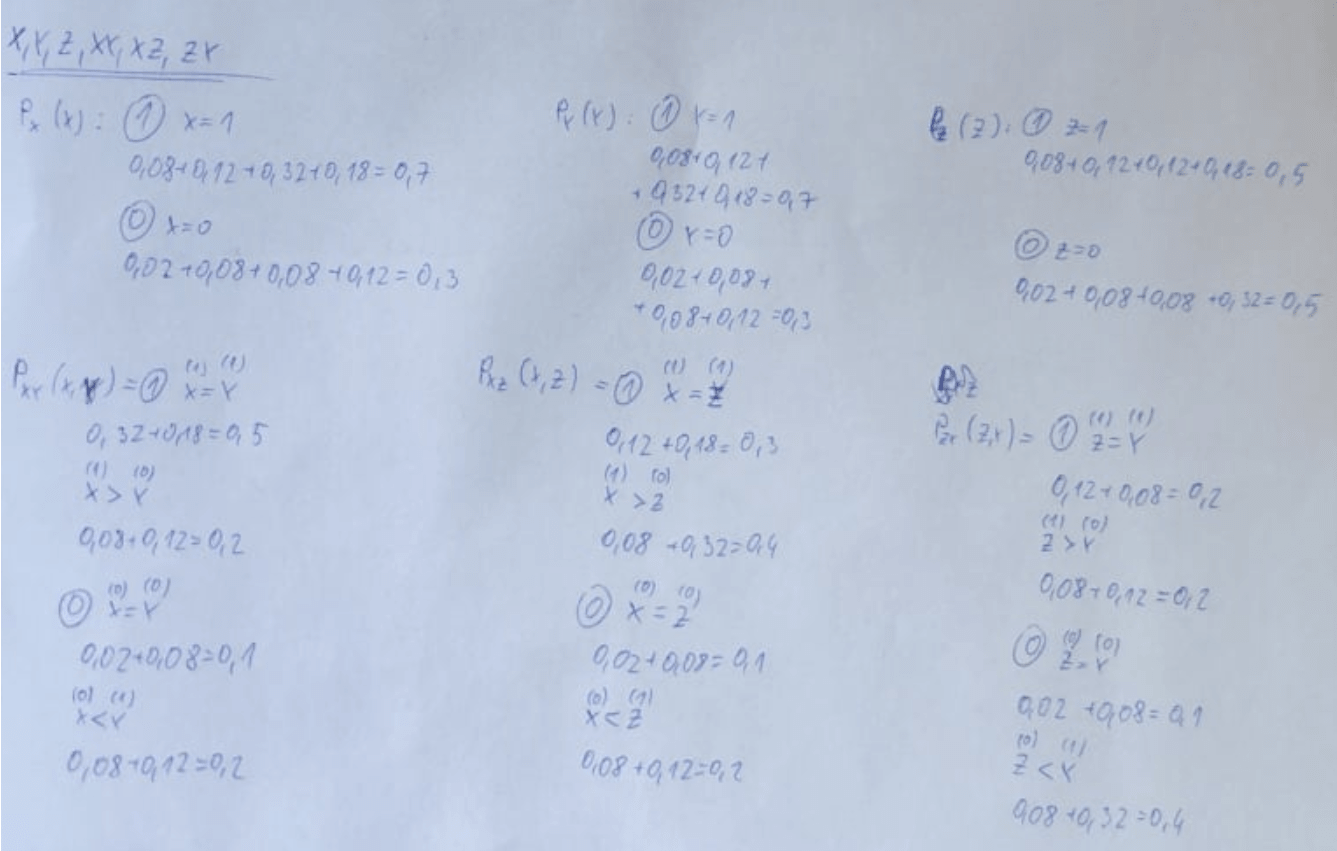 X, Y, Z, XY, XZ, ZY
P_X (x) : ① x=1
0,08+0,12+0,32+0,18=0,7
⓪ x=0
0,02+0,08+0,08+0,12=0,3
P_Y (Y) : ① Y=1
0,08+0,12+
+0,32+0,18=0,7
⓪ Y=0
0,02+0,08+
+0,08+0,12=0,3
P_Z (Z) : ① Z=1
0,08+0,12+0,12+0,18=0,5
⓪ Z=0
0,02+0,08+0,08+0,32=0,5
P_XY (x,Y) = ① (1) (1)
X=Y
0,32+0,18=0,5
(1) (0)
X>Y
0,08+0,12=0,2
⓪ (0) (0)
X=Y
0,02+0,08=0,1
(0) (1)
X<Y
0,08+0,12=0,2
P_XZ (x,Z) = ① (1) (1)
X=Z
0,12+0,18=0,3
(1) (0)
X>Z
0,08+0,32=0,4
⓪ (0) (0)
X=Z
0,02+0,08=0,1
(0) (1)
X<Z
0,08+0,12=0,2
P_ZY (Z,Y) = ① (1) (1)
Z=Y
0,12+0,08=0,2
(1) (0)
Z>Y
0,08+0,12=0,2
⓪ (0) (0)
Z=Y
0,02+0,08=0,1
(0) (1)
Z<Y
0,08+0,32=0,4